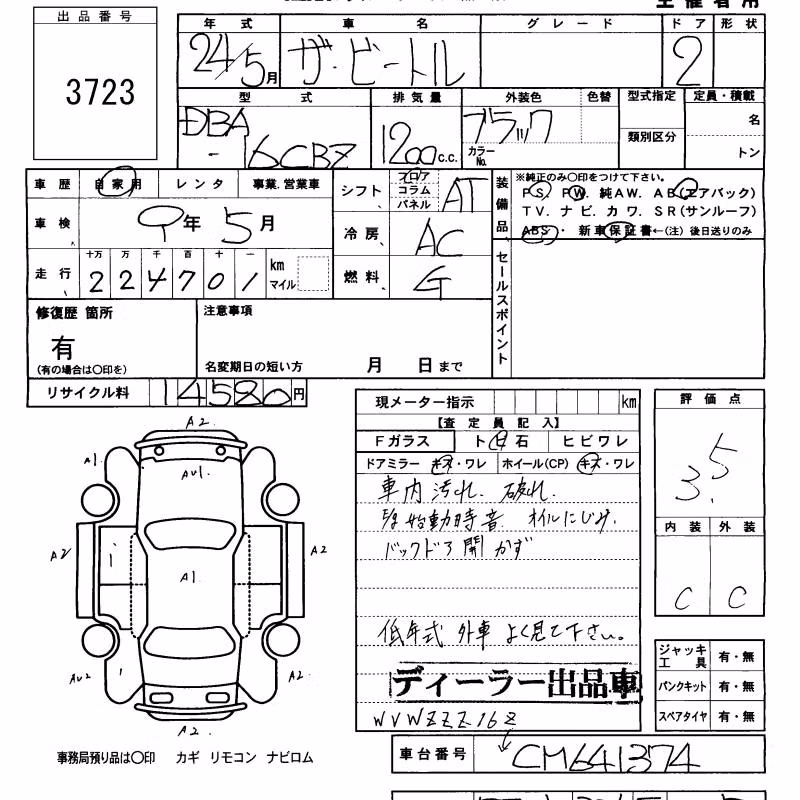 出品番号
3723
年式 車名 グレード ドア 形状
24/5月 ザ・ビートル 2
型式 排気量 外装色 色替 型式指定 定員・積載
DBA - 16CBZ 1200c.c. ブラック カラーNo. 類別区分 名
トン
車歴 自家用 レンタ 事業.営業車
シフト フロア コラム パネル AT
車検 9年5月
冷房 AC
走行 十万 万 千 百 十 一
224701 km マイル
燃料 G
装備品 ※純正のみ〇印をつけて下さい。
PS. PW. 純AW. AB(エアバック)
TV. ナビ. カワ. SR(サンルーフ)
ABS ・ 新車保証書←(注) 後日送りのみ
セールスポイント
修復歴箇所
有
(有の場合は〇印を)
注意事項
名変期日の短い方 月 日まで
リサイクル料 14580円
現メーター指示 km
【査定員記入】
Fガラス ト 石 ヒビワレ
ドアミラー キズ・ワレ ホイール(CP) キズ・ワレ
車内 汚れ. 破れ.
始動時音 オイルにじみ.
バックドア 開かず
低年式 外車 よく見て下さい。
ディーラー出品車
WVWZZZ16Z
車台番号 CM641374
評価点
3.5
内装 外装
C C
ジャッキ工具 有・無
パンクキット 有・無
スペアタイヤ 有・無
A2
A1 AU1
A2 A1 A2
AU2 A2
A2
事務局預り品は〇印 カギ リモコン ナビロム